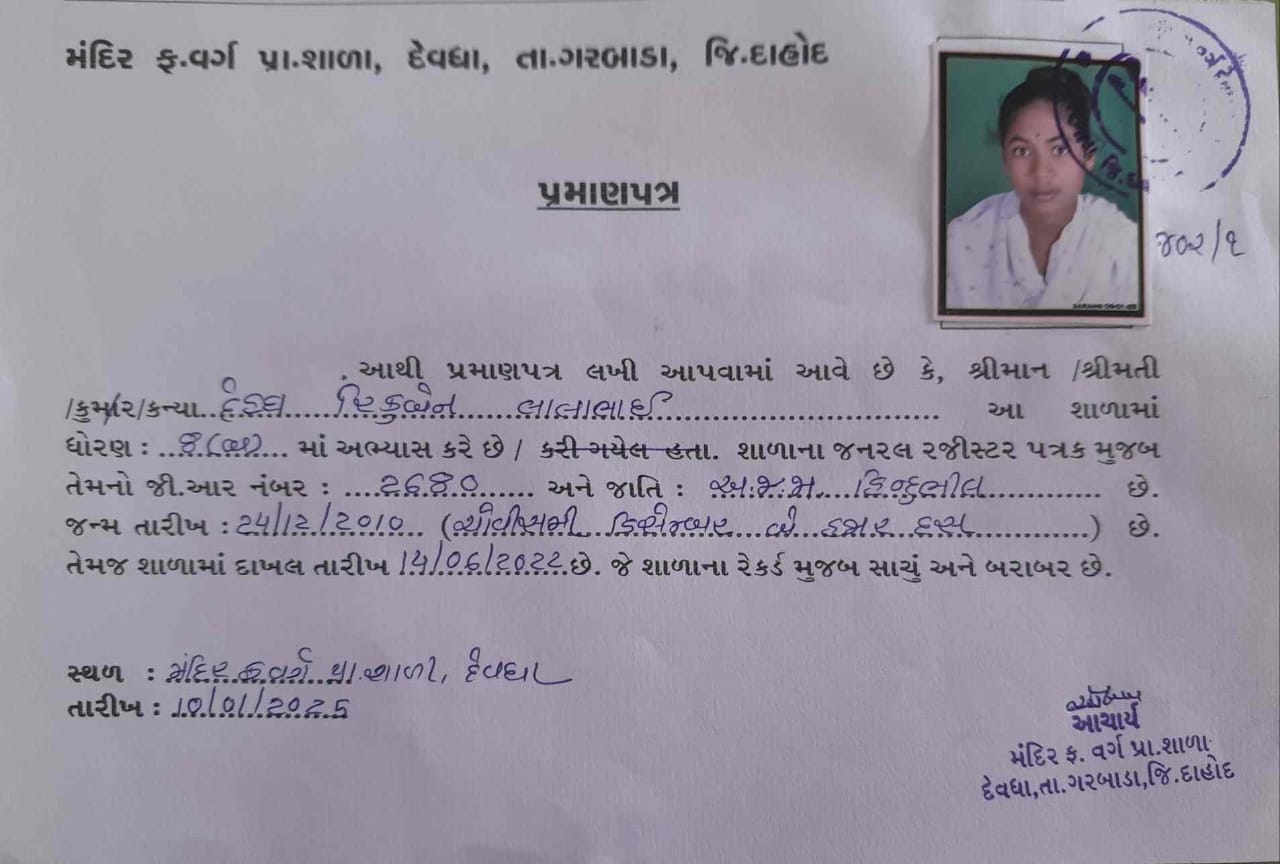 મંદિર ફ.વર્ગ પ્રા.શાળા, દેવધા, તા.ગરબાડા, જિ.દાહોદ
પ્રમાણપત્ર
૪૦૨/૧
. આથી પ્રમાણપત્ર લખી આપવામાં આવે છે કે, શ્રીમાન /શ્રીમતી
/કુમાર/કન્યા.. ટીંકુબેન લાલાભાઈ આ શાળામાં
ધોરણ : માં અભ્યાસ કરે છે / કરી ગયેલ હતા. શાળાના જનરલ રજીસ્ટર પત્રક મુજબ
તેમનો જી.આર નંબર : ....૨૬૪૦...... અને જાતિ : હિન્દુભીલ............ છે.
જન્મ તારીખ : ૨૫/૧૨/૨૦૧૦ ( ડિસેમ્બર બે હજાર દસ ) છે.
તેમજ શાળામાં દાખલ તારીખ ૧૫/૦૬/૨૦૨૨ છે. જે શાળાના રેકર્ડ મુજબ સાચું અને બરાબર છે.
સ્થળ : મંદિર ફ.વર્ગ પ્રા.શાળા, દેવધા
તારીખ : ૧૦/૦૧/૨૦૨૬
આચાર્ય
મંદિર ફ. વર્ગ પ્રા.શાળા
દેવધા,તા.ગરબાડા,જિ.દાહોદ